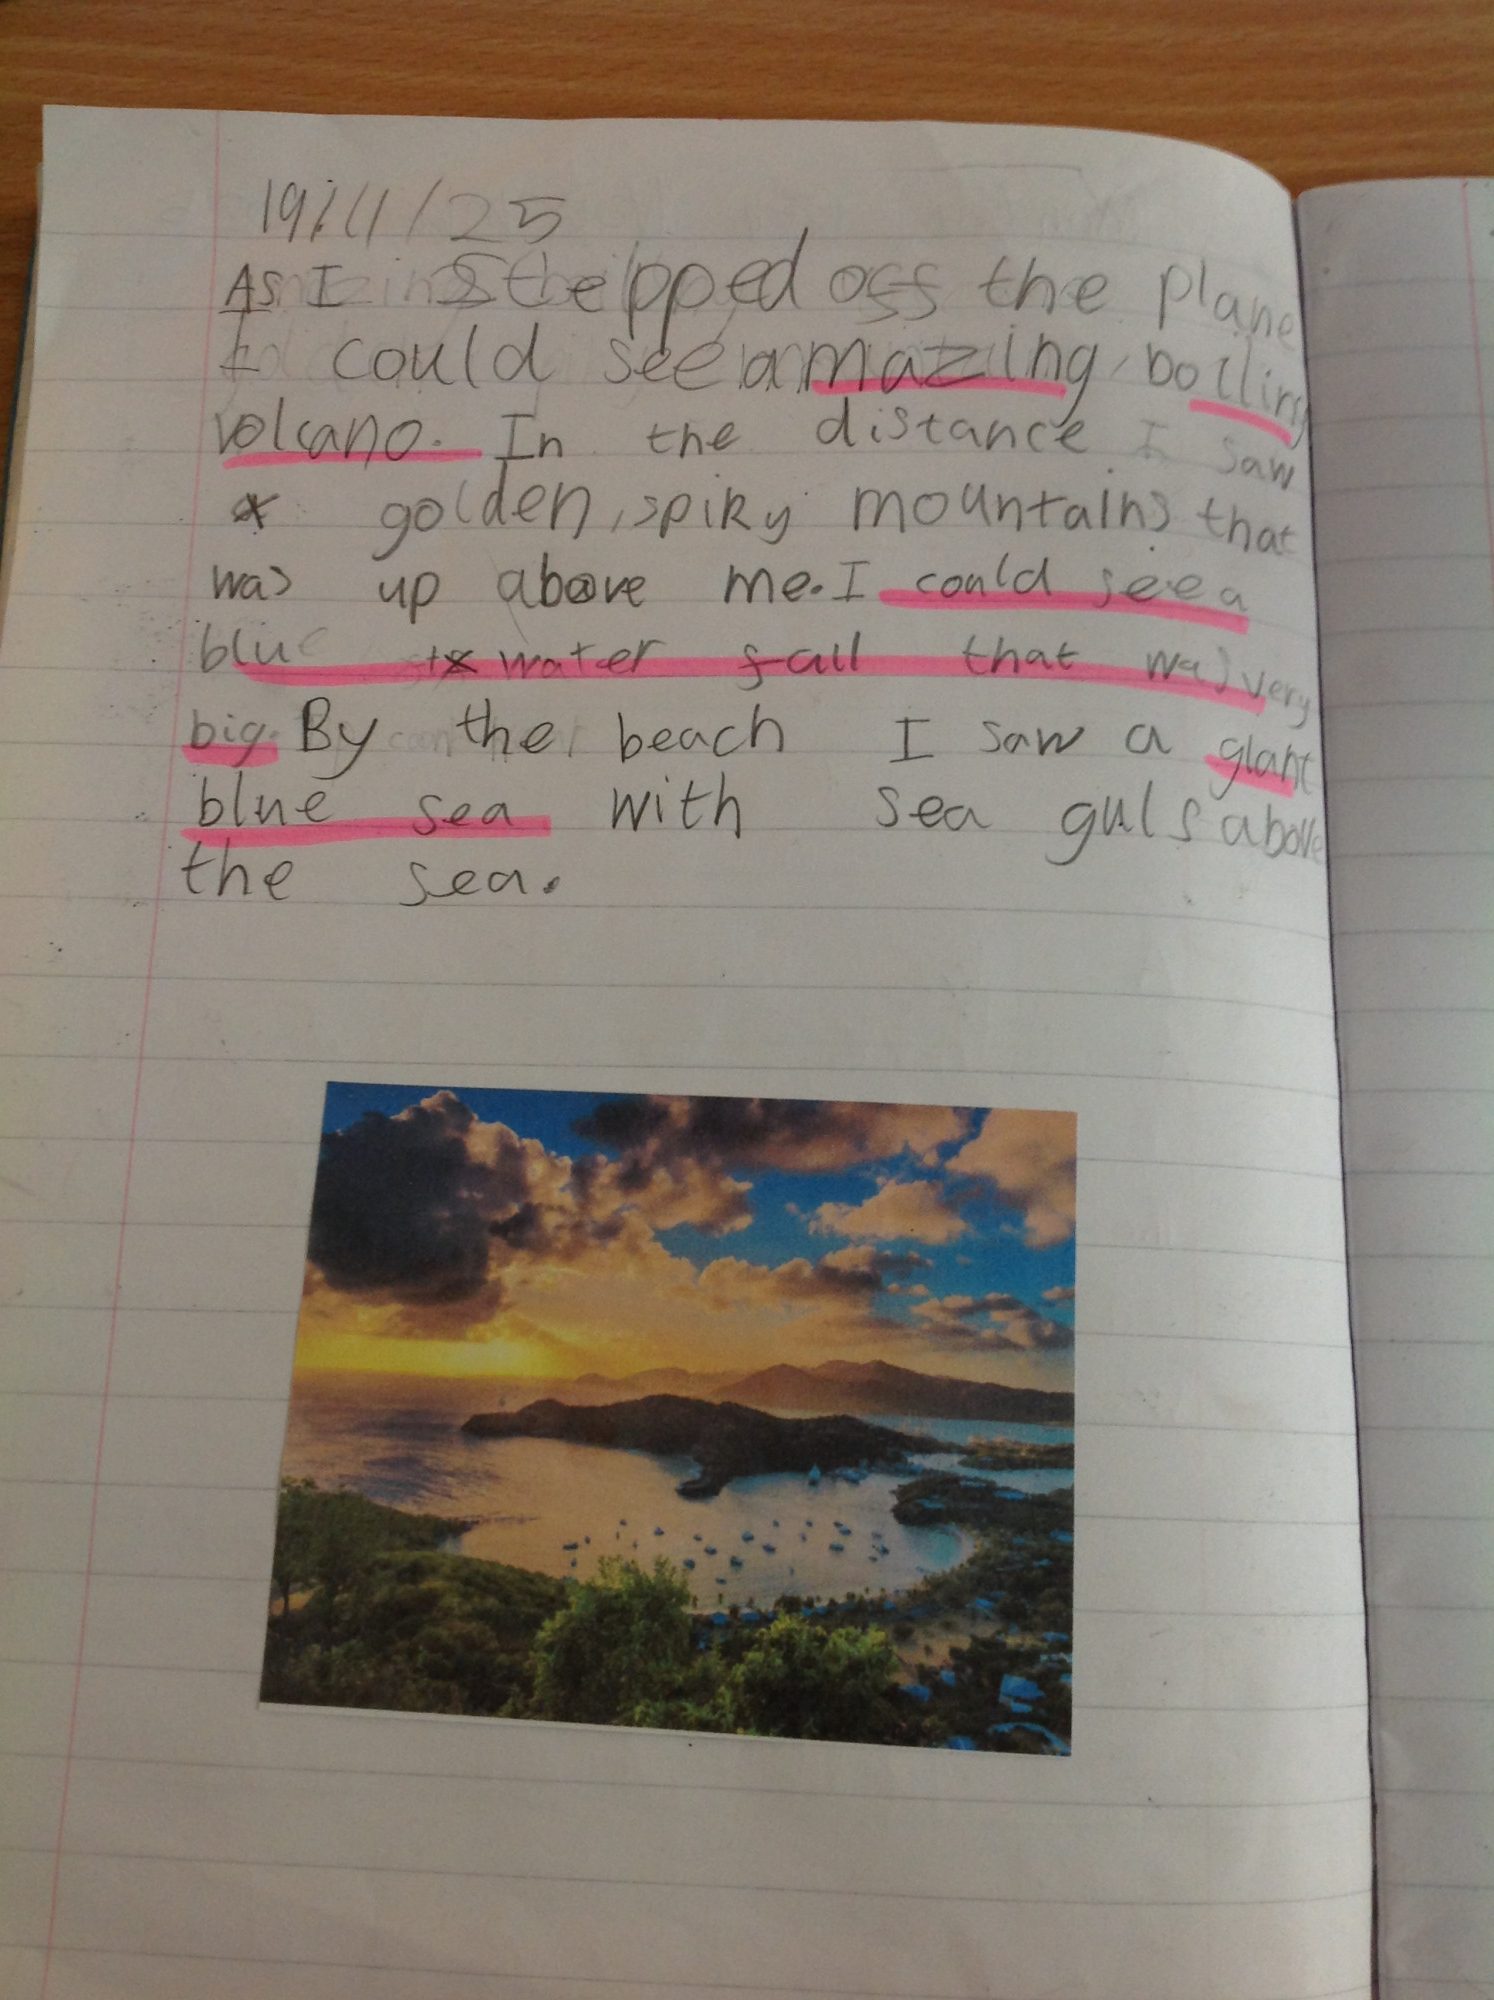 19/11/25
As I stepped off the plane
I could see amazing, boiling
volcano. In the distance I saw
golden, spiky mountains that
was up above me. I could see a
blue water fall that was very
big. By the beach I saw a giant
blue sea with sea guls above
the sea.